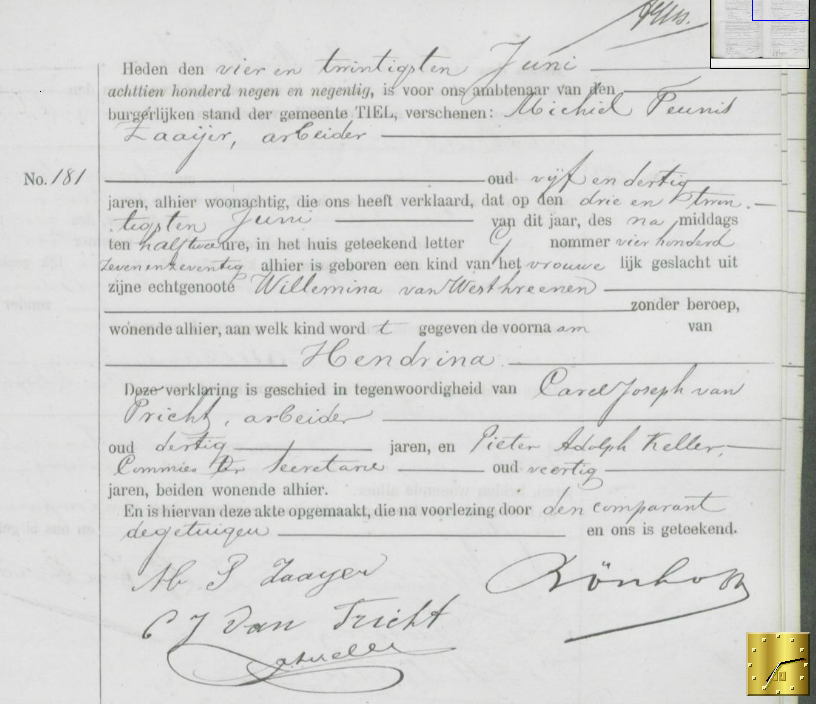 Heden den vier en twintigsten Juni
achttien honderd negen en negentig, is voor ons ambtenaar van den
burgerlijken stand der gemeente TIEL, verschenen: Michiel Teunis
Zaaijer, arbeider
No. 181
oud vijf en dertig
jaren, alhier woonachtig, die ons heeft verklaard, dat op den drie en twin-
tigsten Juni van dit jaar, des na middags
ten half twee ure, in het huis geteekend letter nommer vier honderd
zeven en zeventig alhier is geboren een kind van het vrouwe lijk geslacht uit
zijne echtgenoote Willemina van Westhreenen
zonder beroep,
wonende alhier, aan welk kind word t gegeven de voorna am van
Hendrina
Deze verklaring is geschied in tegenwoordigheid van Carel Joseph van
Tricht, arbeider
oud dertig jaren, en Pieter Adolph Keller,
Commies ter Secretarie oud veertig
jaren, beiden wonende alhier.
En is hiervan deze akte opgemaakt, die na voorlezing door den comparant
de getuigen en ons is geteekend.
M T Zaayer
C J van Tricht